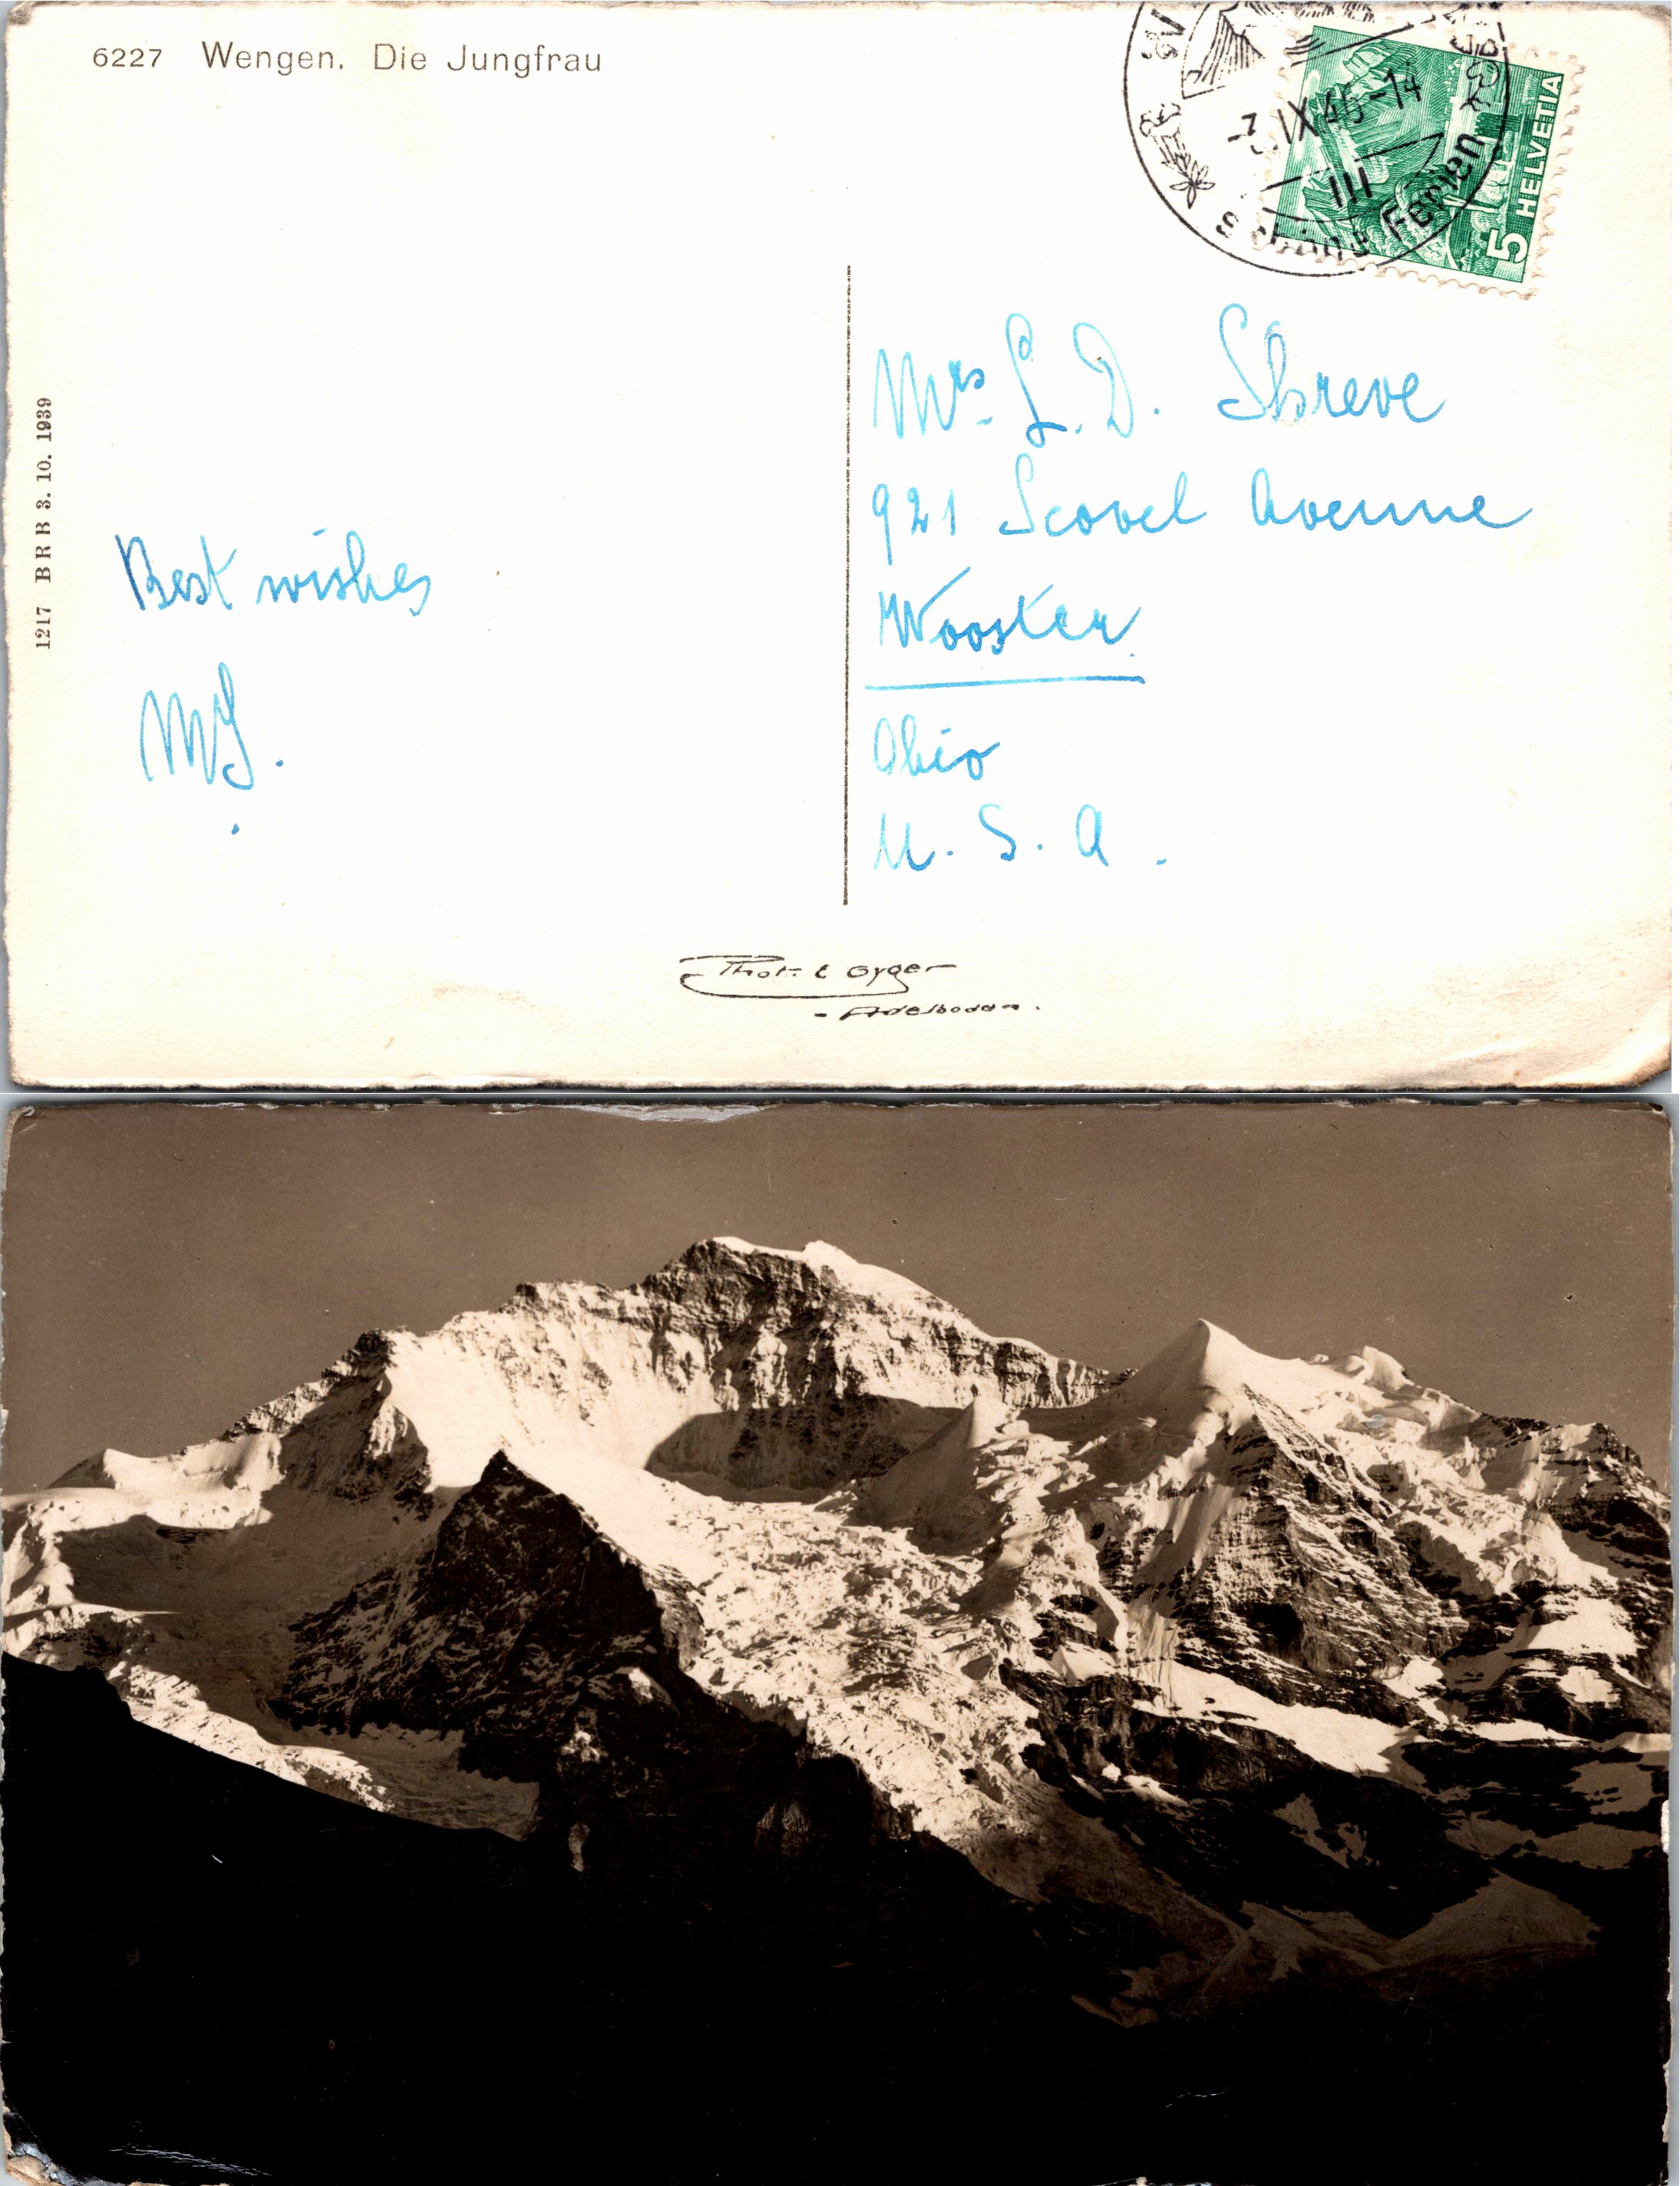 6227 Wengen. Die Jungfrau
-7.IX 46-14
III
Schöne Ferien
HELVETIA
5
1217 BRB 3. 10. 1939
Best wishes
MJ.
Mrs. L. D. Shreve
921 Scovel Avenue
Wooster
Ohio
U. S. A.
Phot. E Gyger
- Adelboden.